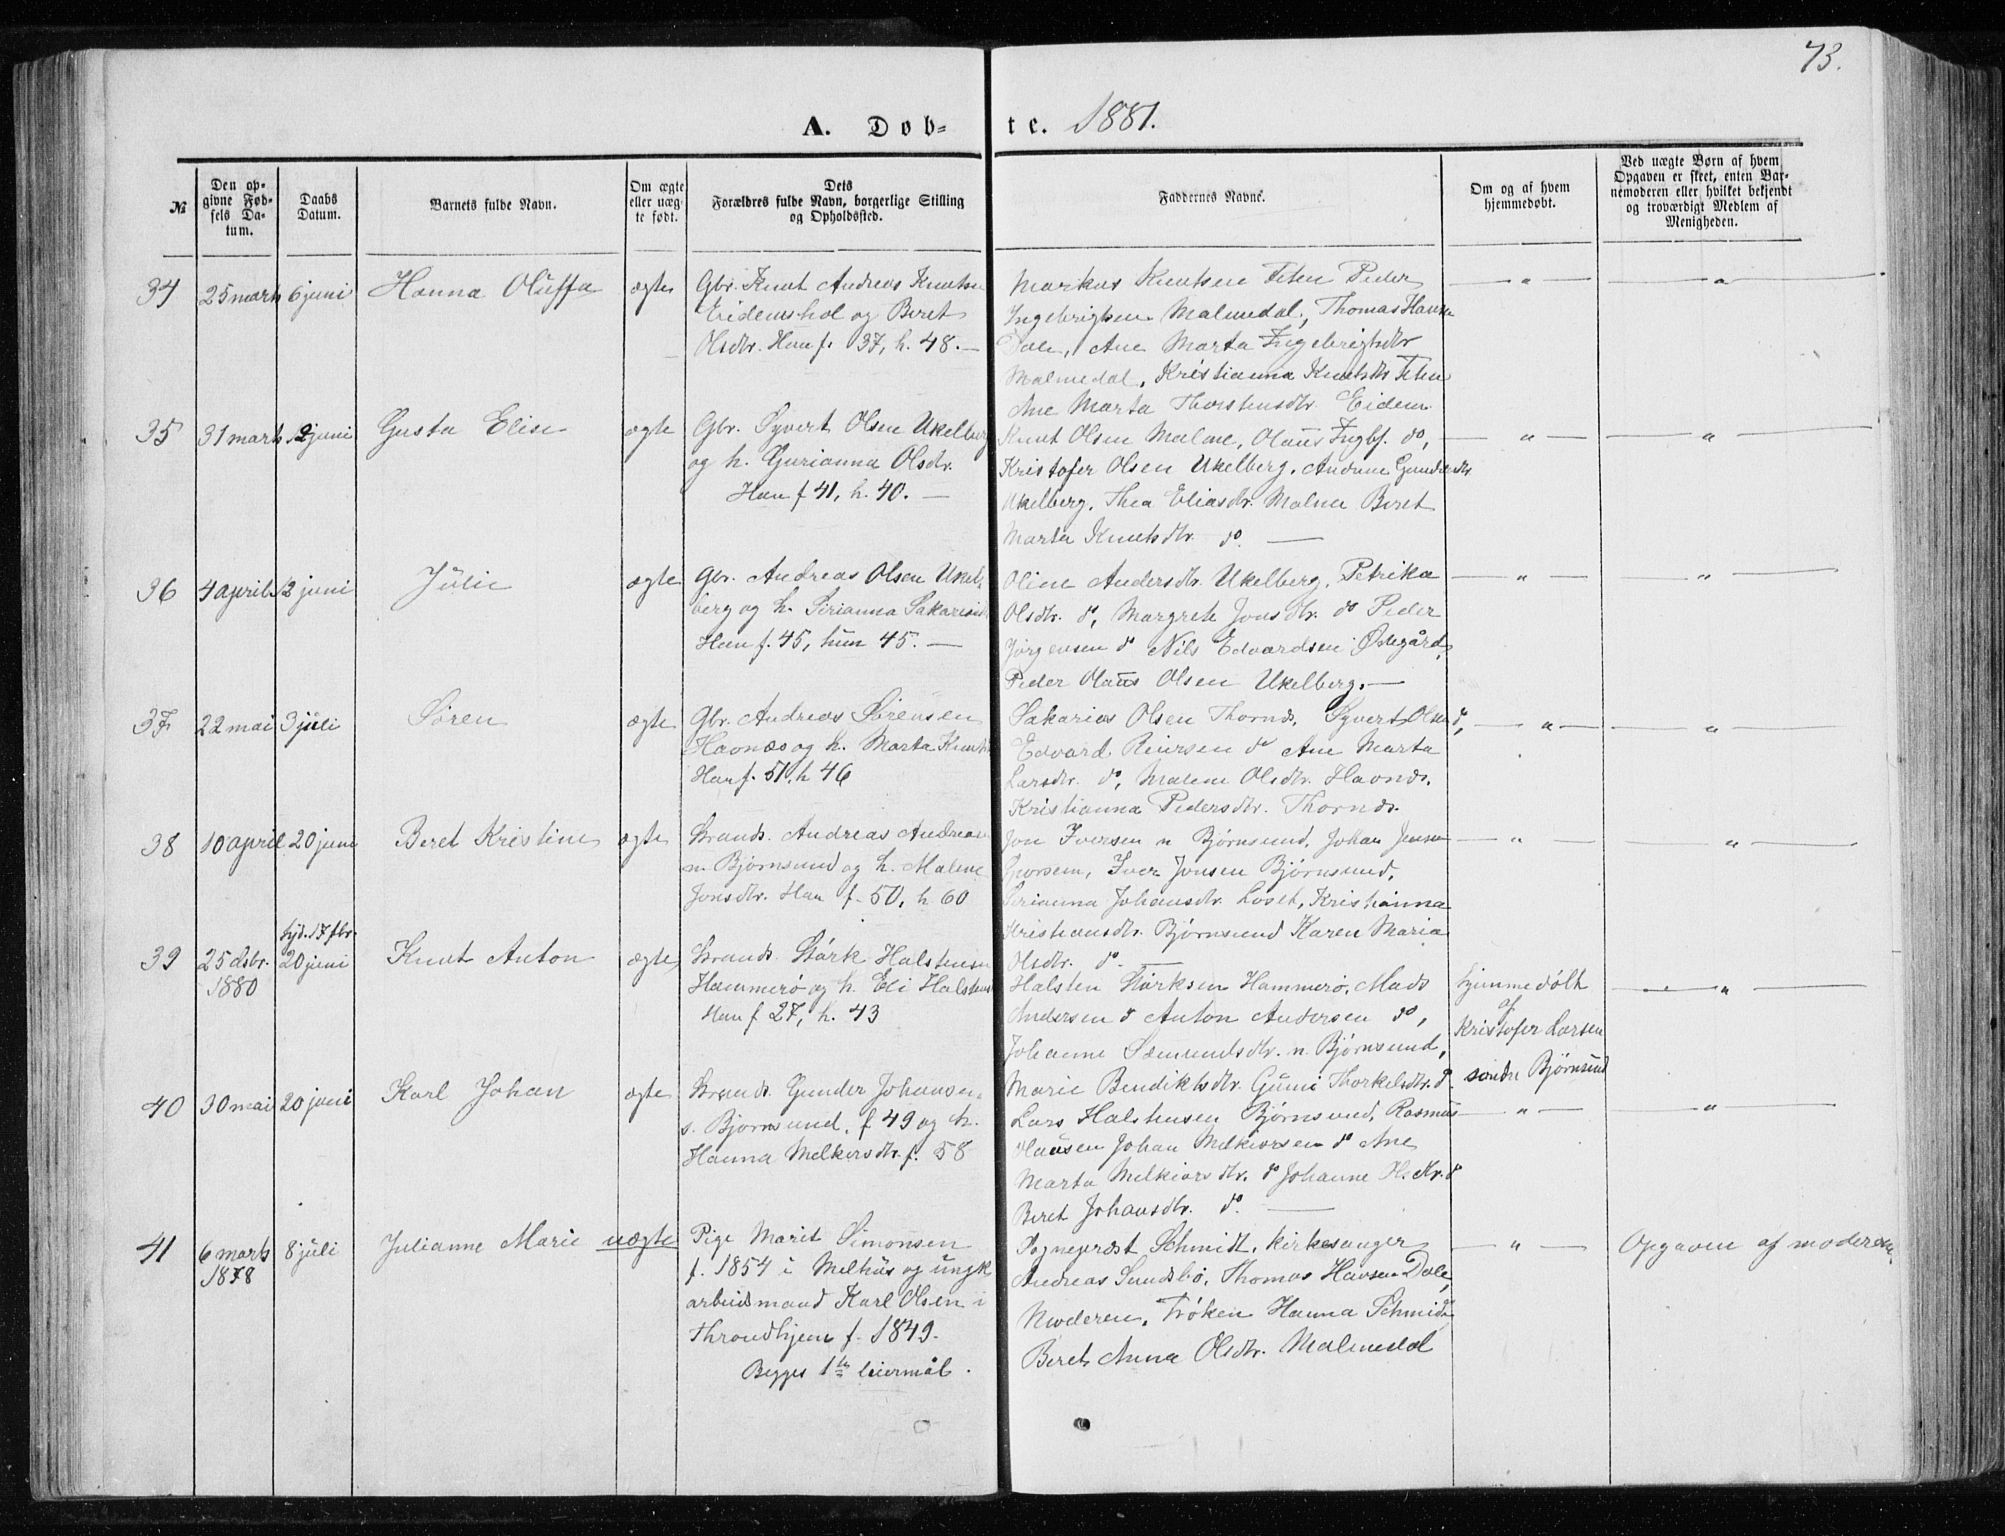 73.
A. Døb-te. 1881.
№
Den op-
givne Fød-
sels Da-
tum.
Daabs
Datum.
Barnets fulde Navn.
Om ægte
eller uæg-
te født.
Dets
Forældres fulde Navn, borgerlige Stilling
og Opholdssted.
Faddernes Navne.
Om og af hvem
hjemmedøbt.
Ved uægte Børn af hvem
Opgaven er skeet, enten Bar-
nemoderen eller hvilket bekjendt
og troværdigt Medlem af
Menigheden.
34 25 marts 6 juni Hanna Oluffa ægte
Gbr. Knut Andreas Knutsen
Eidemshol og Beret
Olsdtr. Han f. 37, h. 48. —
Markus Knutsen Peder
Ingebrigtsen Malmedal, Thomas Hansen
Dale, Ane Marta Ingebrigtsdtr
Malmedal, Kristianna Knutsdtr
Ane Marta Thorstensdtr. Eidem
— " — — " —
35 31 marts 12 juni Gusta Elise ægte
Gbr. Syvert Olsen Ukelberg
og h. Gurianna Olsdr.
Han f 41, h. 40. —
Knut Olsen Malme, Olaus Ingbr. do,
Kristofer Olsen Ukelberg, Gundersdtr
Ukelberg, Thea Eliasdtr. Malme Beret
Marta Knutsdtr. do. —
— " — — " —
36 4 april 12 juni Julie ægte
Gbr. Andreas Olsen Ukel-
berg og h. Sirianna Sakariasdtr
Han f. 45, hun 45. —
Oline Andersdtr. Ukelberg, Petrika
Olsdtr. do, Margrete Jonsdtr. do Peder
Jørgensen do Nils Edvardsen
Peder Olaus Olsen Ukelberg. —
— " — — " —
37 22 mai 3 juli Søren ægte
Gbr. Andreas Sørensen
Havnæs og h. Marta Knutsd
Han f. 51, h 46
Sakarias Olsen Thornæs, Syvert Olsen do,
Edvard Reiersen do Ane Marta
Larsdtr. do, Malene Olsdtr. Havnæs,
Kristianna Pedersdtr. Thornæs.
— " — — " —
38 10 april 20 juni Beret Kristine ægte
Strands. Andreas Andreasen
n. Bjørnsund og h. Malene
Jonsdtr. Han f. 50, h 60
Jon Iversen n Bjørnsund, Johan Jensen
Iver Jonsen Bjørnsund,
Sirianna Johansdtr. Loset, Kristianna
Kristiansdtr. Bjørnsund Karen Maria
Olsdtr. do. —
— " — — " —
39 25 dsbr. 1880 hjd. 17 fbr. 20 juni Knut Anton ægte
Strands. Stærk Halstensen
Hammerø og h. Eli Halstensd
Han f 27, h. 43
Halsten Størksen Hammerø, Mads
Andersen do Anton Andersen do,
Johanne Sæmundsdtr. n. Bjørnsund,
Marie Bendiktsdtr. Guni Thorkelsdtr. do
hjemmedøbt
af
Kristofer Larsen
søndre Bjørnsund
— " —
40 30 mai 20 juni Karl Johan ægte
Strands. Gunder Johansen
s. Bjørnsund, f 49 og h.
Hanna Melkersdtr. f. 58
Lars Halstensen Bjørnsund, Rasmus
Olausen Johan Melkiorsen do Ane
Marta Melkiorsdtr. do Johanne H. Kr. do
Beret Johansdtr. do. —
— " — — " —
41 6 marts 1878 8 juli Julianne Marie uægte
Pige Marit Simonsen
f. 1854 i Melhus og ungk
arbeidsmand Karl Olsen i
Throndhjem f. 1849.
Begges 1ste leiermål.
Sognepræst Schmidt, kirkesanger
Andreas Sundsbø, Thomas Hansen Dale,
Moderen, Frøken Hanna Schmidt
Beret Anna Olsdtr. Malmedal
— " —
Opgaven af moderen.